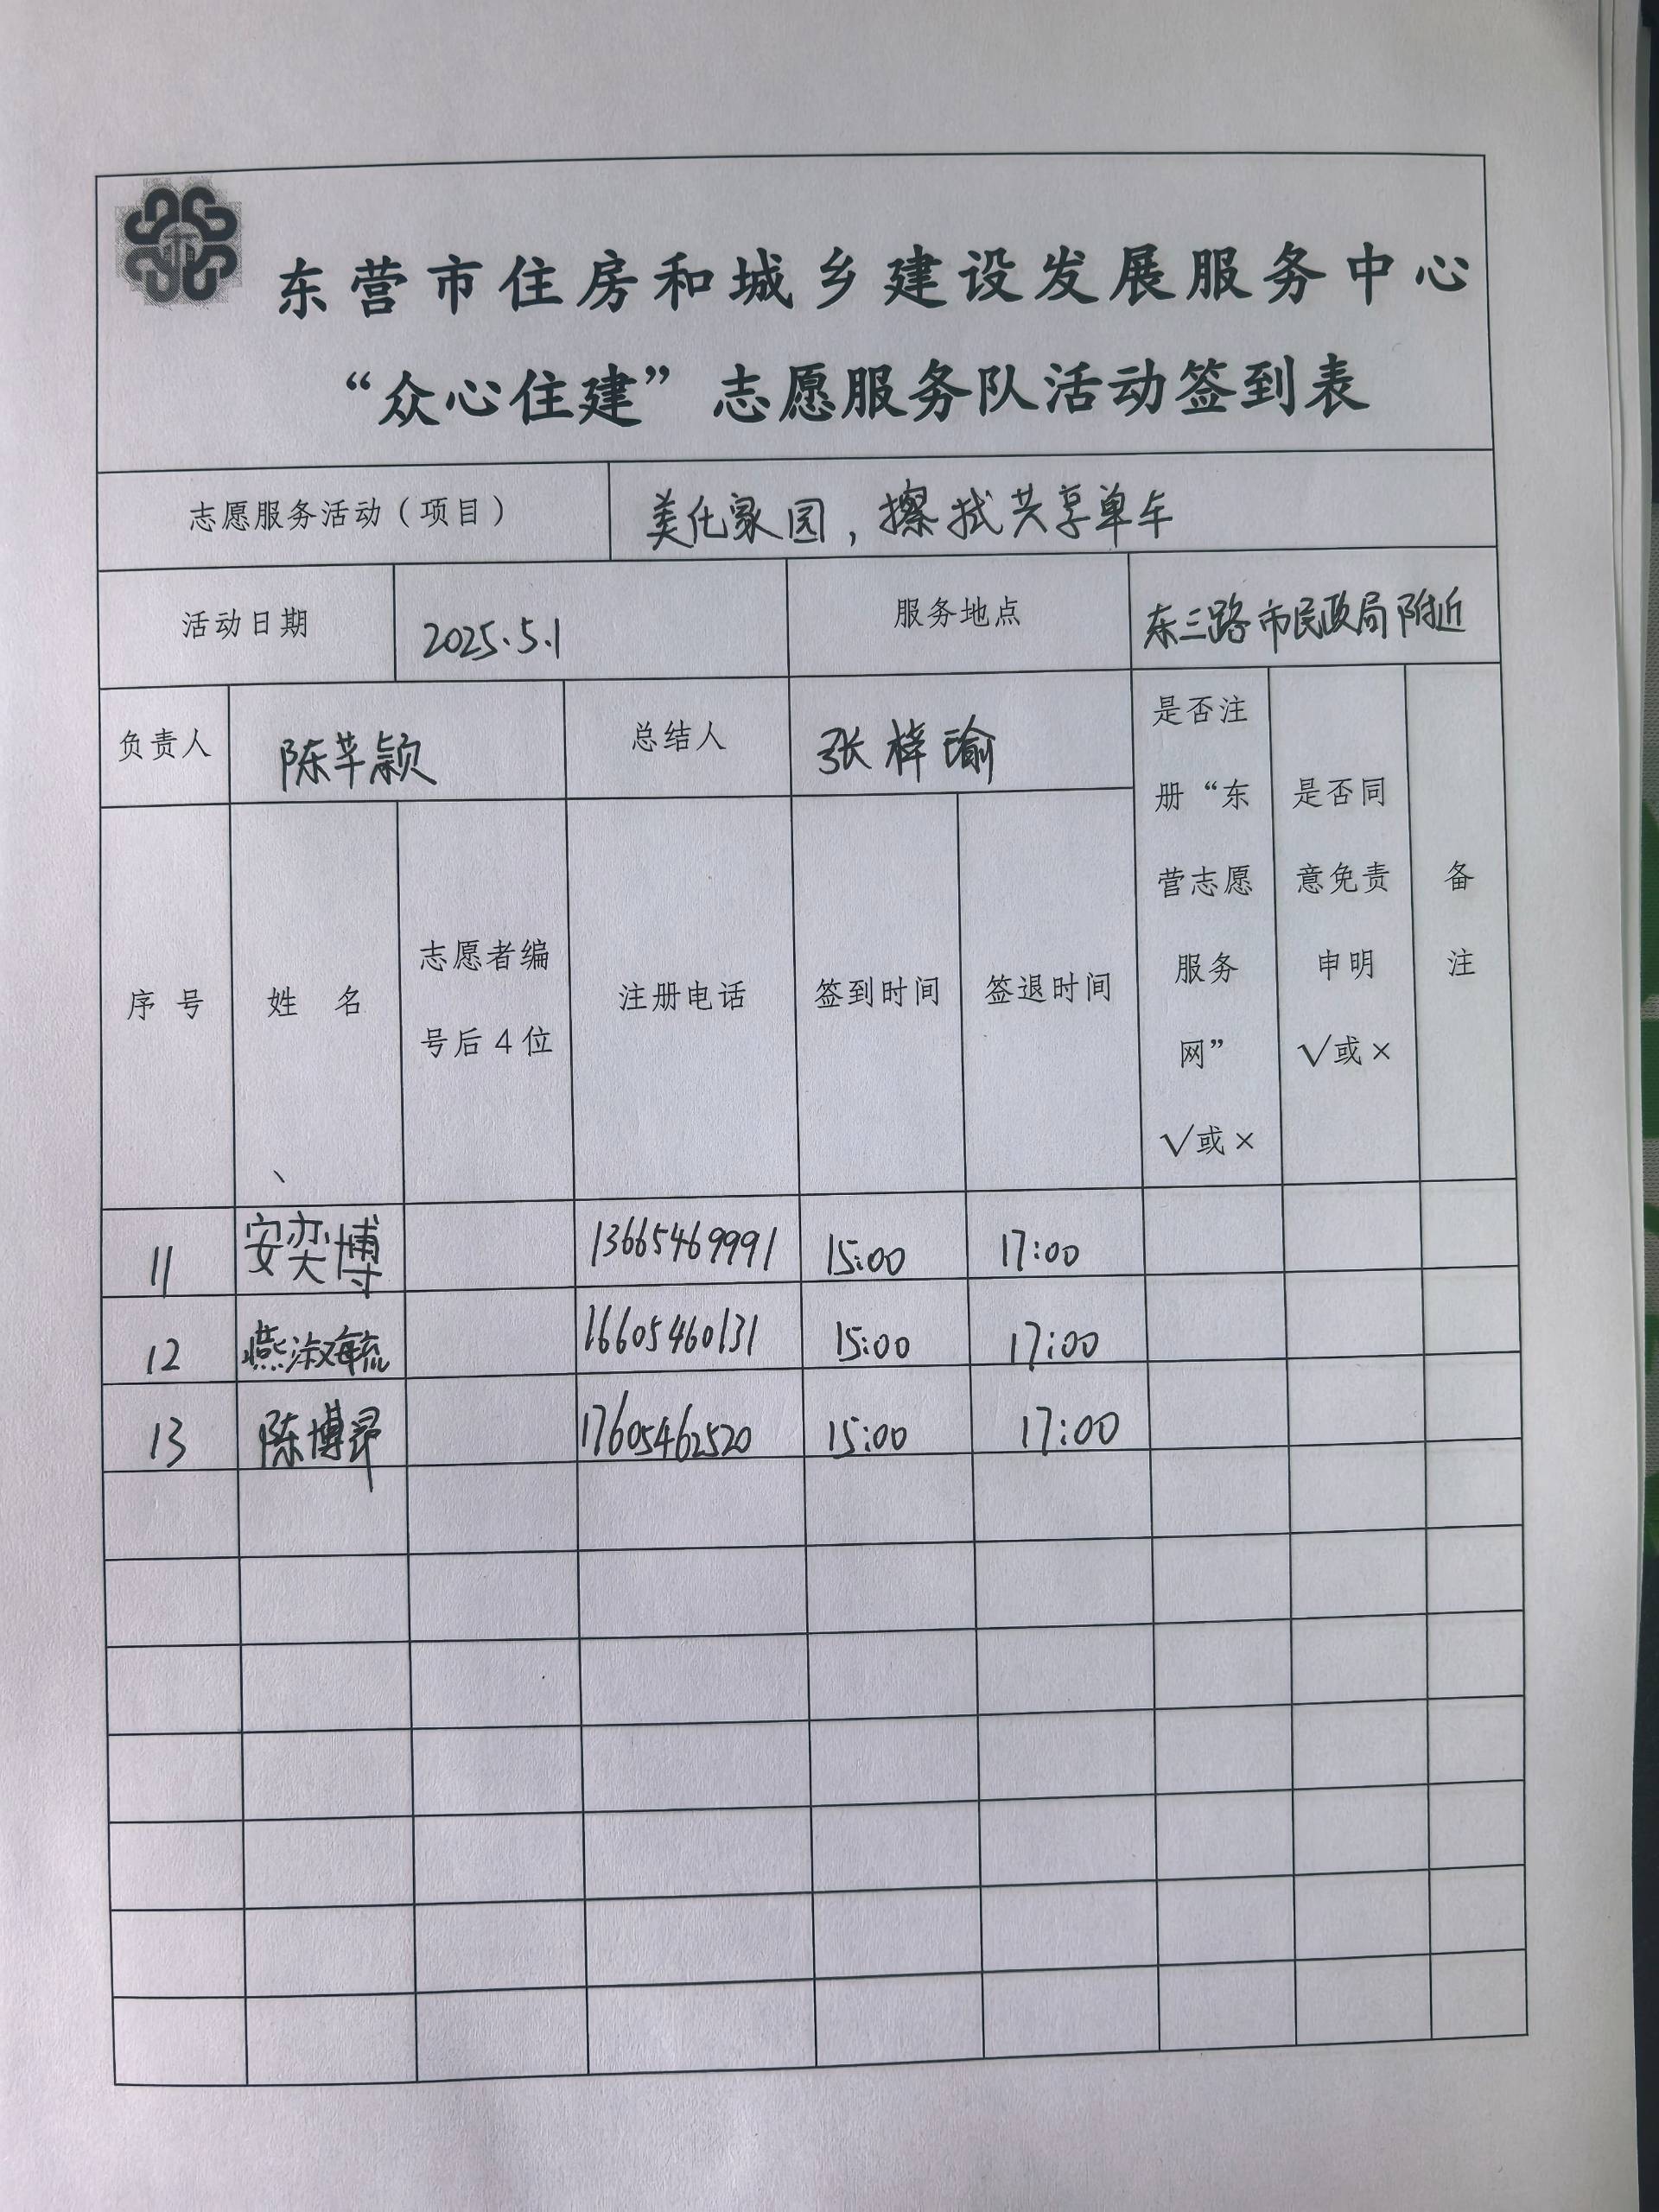 东营市住房和城乡建设发展服务中心
“众心住建”志愿服务队活动签到表
志愿服务活动（项目） 美化家园，擦拭共享单车
活动日期 2025.5.1 服务地点 东三路市民政局附近
负责人 陈芊颖 总结人 张梓瑜
序号 姓名 志愿者编号后4位 注册电话 签到时间 签退时间 是否注册“东营志愿服务网”√或× 是否同意免责申明√或× 备注
11 安奕博 13665469991 15:00 17:00
12 燕淑毓 16605460131 15:00 17:00
13 陈博昂 17605462520 15:00 17:00